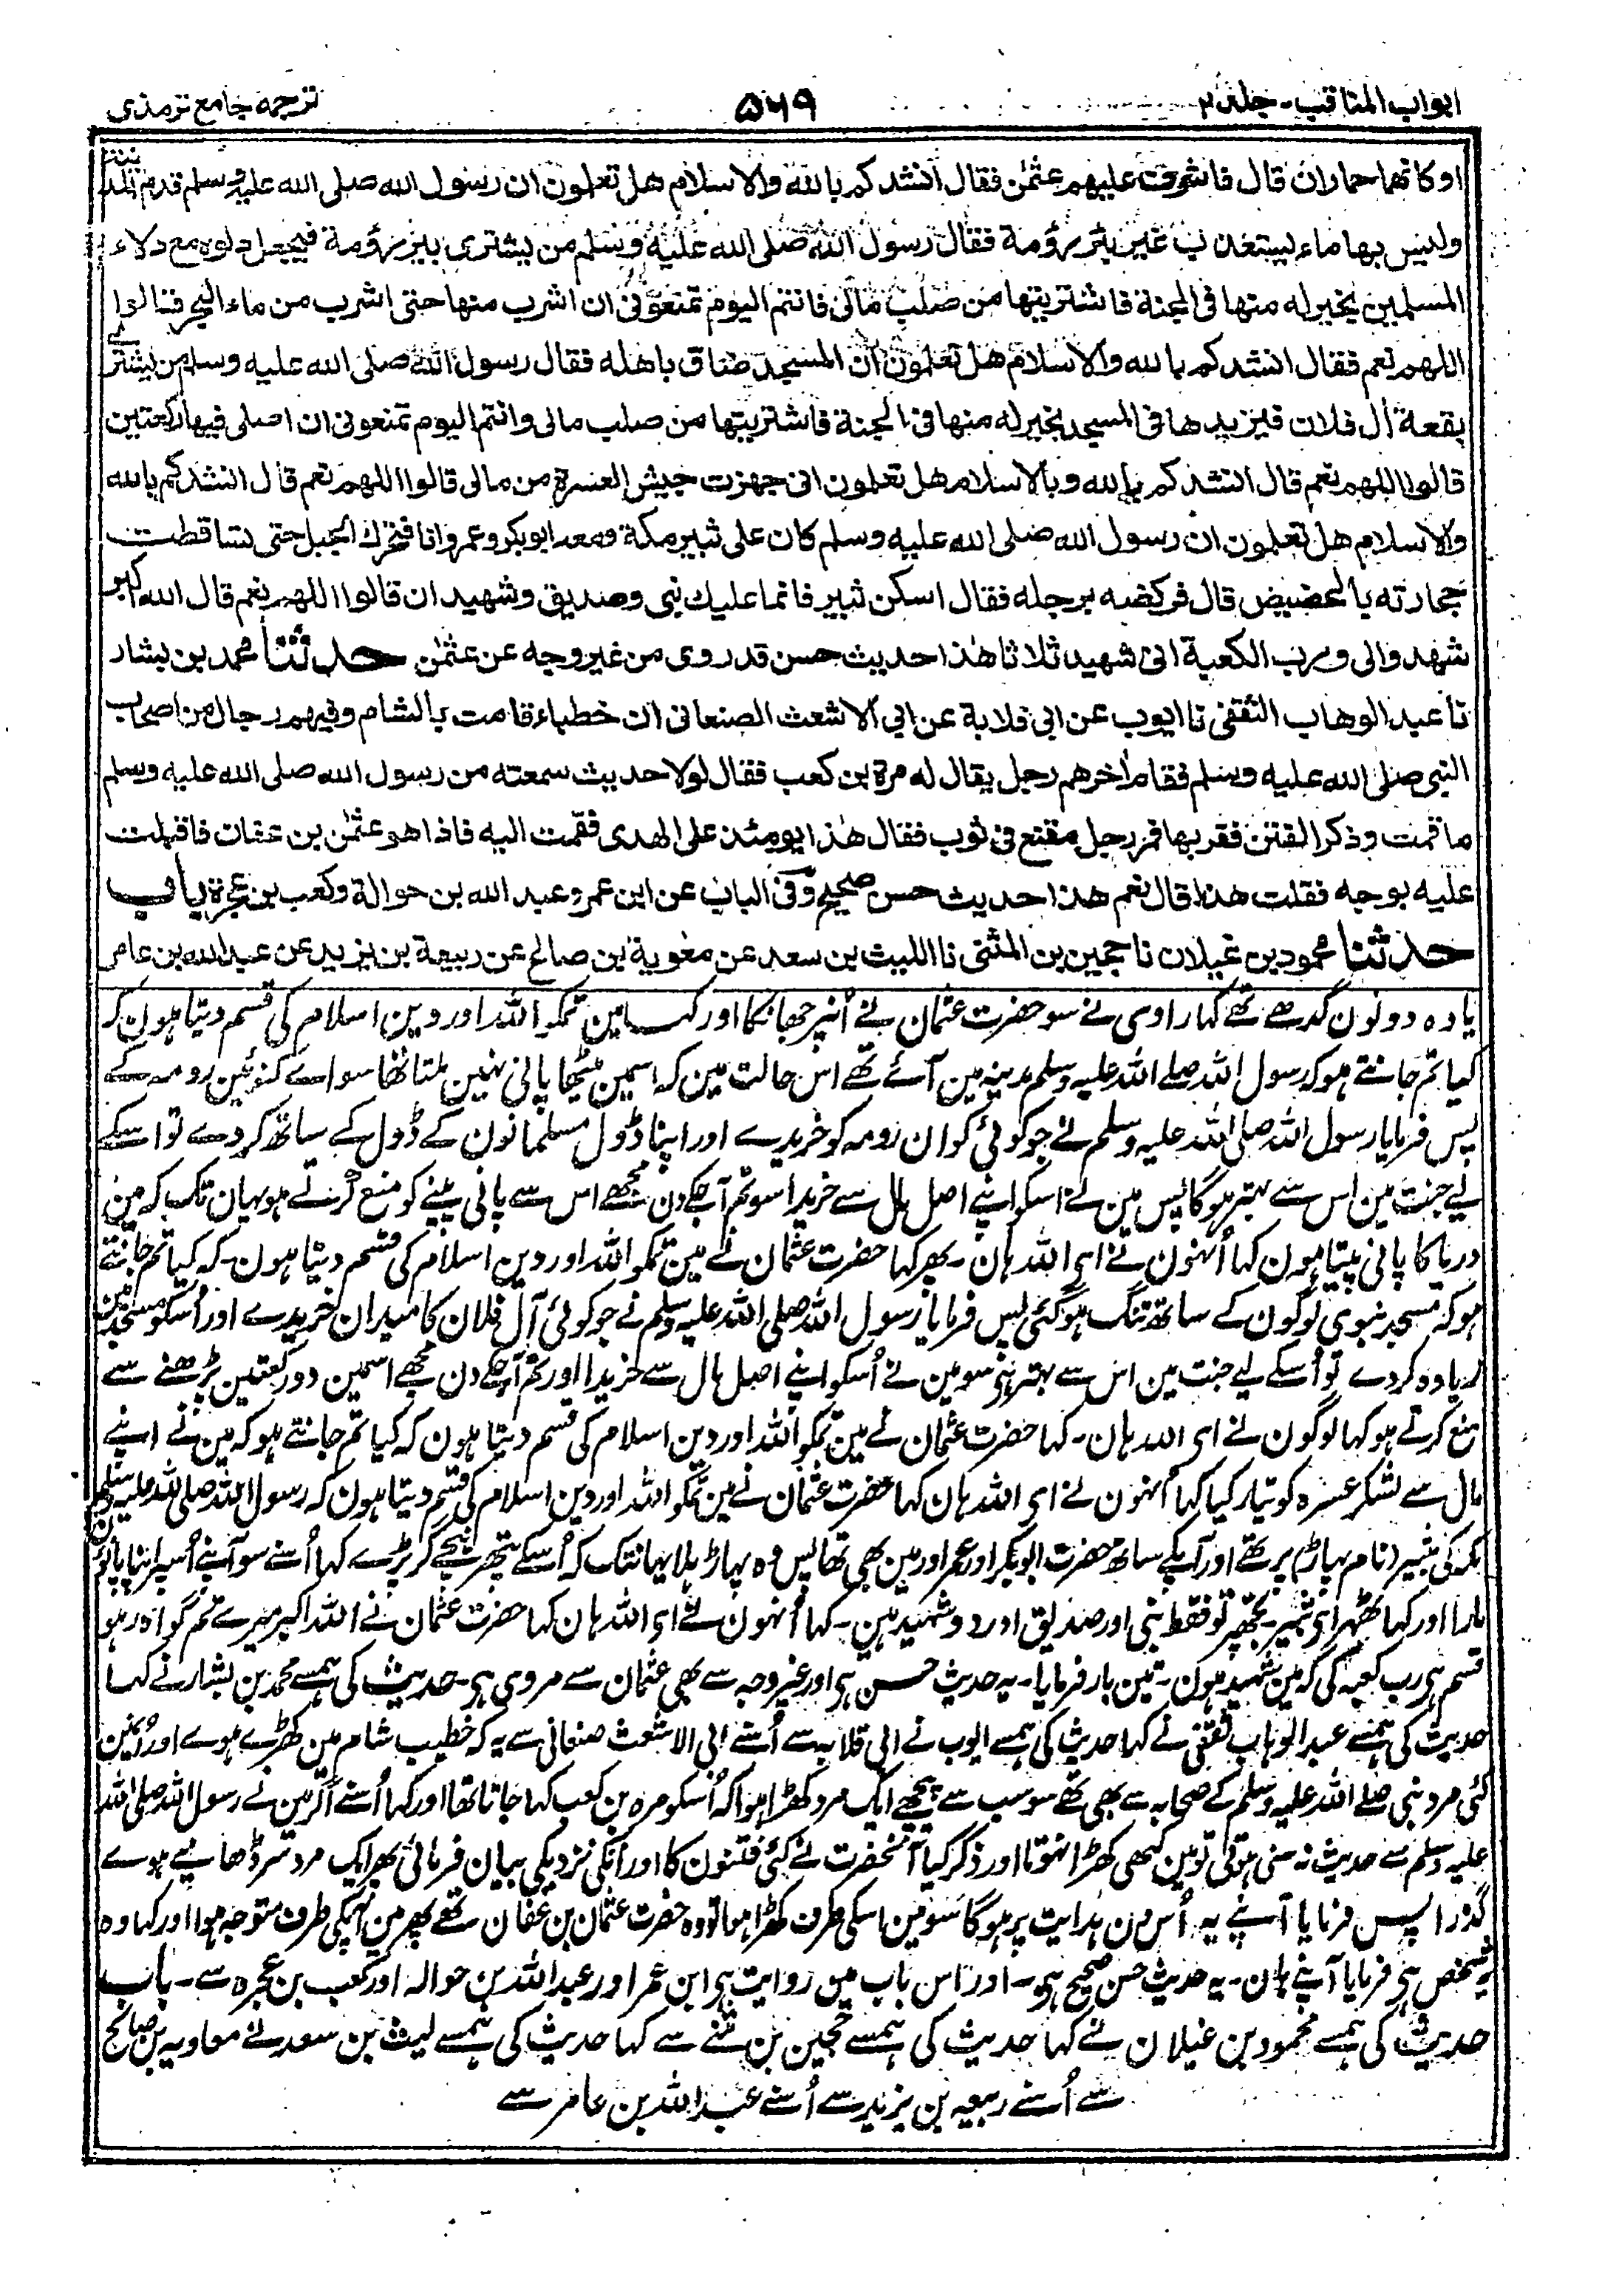 ابواب المناقب - جلد ٢
٥٦٩
ترجمه جامع ترمذی
اوكانهما حماران قال فاشرف عليهم عثمٰن فقال انشدكم بالله والاسلام هل تعلمون ان رسول الله صلى الله عليه وسلم قدم المدينة
وليس بها ماء يستعذب غير بئر رومة فقال رسول الله صلى الله عليه وسلم من يشتری بئر رومة فيجعل دلوه مع دلاء
المسلمين بخير له منها فى الجنة فاشتريتها من صلب مالى فانتم اليوم تمنعونى ان اشرب منها حتى اشرب من ماء البحر قالوا
اللهم نعم فقال انشدكم بالله والاسلام هل تعلمون ان المسجد ضاق باهله فقال رسول الله صلى الله عليه وسلم من يشترى
بقعة ال فلان فيزيدها فى المسجد بخير له منها فى الجنة فاشتريتها من صلب مالى وانتم اليوم تمنعونى ان اصلى فيها ركعتين
قالوا اللهم نعم قال انشدكم بالله وبالاسلام هل تعلمون انى جهزت جيش العسرة من مالى قالوا اللهم نعم قال انشدكم بالله
والاسلام هل تعلمون ان رسول الله صلى الله عليه وسلم كان على ثبير مكة ومعه ابوبكر وعمر وانا فتحرك الجبل حتى تساقطت
حجارته بالحضيض قال فركضه برجله فقال اسكن ثبير فانما عليك نبى وصديق وشهيدان قالوا اللهم نعم قال الله اكبر
شهدوا لى ورب الكعبة انى شهيد ثلاثا هٰذا حديث حسن قد روى من غير وجه عن عثمٰن حدثنا محمد بن بشار
نا عبد الوهاب الثقفى نا ايوب عن ابى قلابة عن ابى الاشعث الصنعانى ان خطباء قامت بالشام وفيهم رجال من اصحاب
النبى صلى الله عليه وسلم فقام اٰخرهم رجل يقال له مرة بن كعب فقال لولا حديث سمعته من رسول الله صلى الله عليه وسلم
ما قمت وذكر الفتن فقربها فمر رجل مقنع فى ثوب فقال هٰذا يومئذ على الهدى فقمت اليه فاذا هو عثمٰن بن عفان فاقبلت
عليه بوجهه فقلت هذا قال نعم هذا حديث حسن صحيح وفى الباب عن ابن عمر وعبد الله بن حوالة وكعب بن عجرة باب
حدثنا محمود بن غيلان نا حجين بن المثنى نا الليث بن سعد عن معٰوية بن صالح عن ربيعة بن يزيد عن عبد الله بن عامر
یا وہ دونوں گدھے تھے کہا راوی نے سو حضرت عثمان نے اُنپر جھانکا اور کہا مین تمکو اللہ اور دین اسلام کی قسم دیتا ہون کہ
کیا تم جانتے ہو کہ رسول اللہ صلے اللہ علیہ وسلم مدینہ مین آئے تھے اس حالت مین کہ اسمین میٹھا پانی نہین ملتا تھا سواے کنوئین رومہ کے
پس فرمایا رسول اللہ صلی اللہ علیہ وسلم نے جو کوئی کوان رومہ کو خریدے اور اپنا ڈول مسلمانون کے ڈول کے ساتھ کردے تو اسکے
لیے جنت مین اس سے بہتر ہوگا پس مین نے اسکو اپنے اصل مال سے خریدا سو تم آجکے دن مجھے اس سے پانی پینے کو منع کرتے ہو یہان تک کہ مین
دریا کا پانی پیتا ہون کہا اُنہون نے اے اللہ ہان - پھر کہا حضرت عثمان نے مین تمکو اللہ اور دین اسلام کی قسم دیتا ہون - کہ کیا تم جانتے
ہو کہ مسجد نبوی لوگون کے ساتھ تنگ ہوگئی پس فرمایا رسول اللہ صلی اللہ علیہ وسلم نے جو کوئی آل فلان کا میدان خریدے اور اُسکو مسجد مین
زیادہ کردے تو اُسکے لیے جنت مین اس سے بہتر ہی سو مین نے اُسکو اپنے اصل مال سے خریدا اور تم آجکے دن مجھے اسمین دو رکعتین پڑھنے سے
منع کرتے ہو کہا لوگون نے اے اللہ ہان - کہا حضرت عثمان نے مین تمکو اللہ اور دین اسلام کی قسم دیتا ہون کہ کیا تم جانتے ہو کہ مین نے اپنے
مال سے لشکر عسرہ کو تیار کیا کہا اُنہون نے اے اللہ ہان کہا حضرت عثمان نے مین تمکو اللہ اور دین اسلام کی قسم دیتا ہون کہ رسول اللہ صلی اللہ علیہ وسلم
مکہ کی ثبیر (نام پہاڑ) پر تھے اور آپکے ساتھ حضرت ابوبکر اور عمر اور مین بھی تھا پس وہ پہاڑ ہلا یہانتک کہ اُسکے پتھر نیچے گر پڑے کہا اُسنے سو آپنے اُسپر اپنا پائون
مارا اور کہا ٹھہر اے ثبیر - تجھپر تو فقط نبی اور صدیق اور دو شہید ہین - کہا اُنہون نے اے اللہ ہان کہا حضرت عثمان نے اللہ اکبر میرے تم گواہ رہو
قسم ہی رب کعبہ کی کہ مین شہید ہون - تین بار فرمایا - یہ حدیث حسن ہی اور غیر وجہ سے بھی عثمان سے مروی ہی - حدیث کی ہمسے محمد بن بشار نے کہا
حدیث کی ہمسے عبد الوہاب ثقفی نے کہا حدیث کی ہمسے ایوب نے ابی قلابہ سے اُسنے ابی الاشعث صنعانی سے یہ کہ خطیب شام مین کھڑے ہوے اور اُنمین
کئی مرد نبی صلے اللہ علیہ وسلم کے صحابہ سے بھی تھے سو سب سے پیچھے ایک مرد کھڑا ہوا کہ اُسکو مرہ بن کعب کہا جاتا تھا اور کہا اُسنے اگر مین نے رسول اللہ صلی اللہ
علیہ وسلم سے حدیث نہ سنی ہوتی تو مین کبھی کھڑا نہوتا اور ذکر کیا آنحضرت نے کئی فتنون کا اور اُنکی نزدیکی بیان فرمائی پھر ایک مرد سر ڈھانپے ہوے
گذرا پس فرمایا آپنے یہ اُس دن ہدایت پر ہوگا سو مین اسکی طرف کھڑا ہوا تو وہ حضرت عثمان بن عفان تھے پھر مین آپکی طرف متوجہ ہوا اور کہا وہ
یہ شخص ہی فرمایا آپنے ہان - یہ حدیث حسن صحیح ہی - اور اس باب مین روایت ہی ابن عمر اور عبد اللہ بن حوالہ اور کعب بن عجرہ سے - باب
حدیث کی ہمسے محمود بن غیلان نے کہا حدیث کی ہمسے حجین بن مثنے سے کہا حدیث کی ہمسے لیث بن سعد نے معاویہ بن صالح
سے اُسنے ربیعہ بن یزید سے اُسنے عبد اللہ بن عامر سے